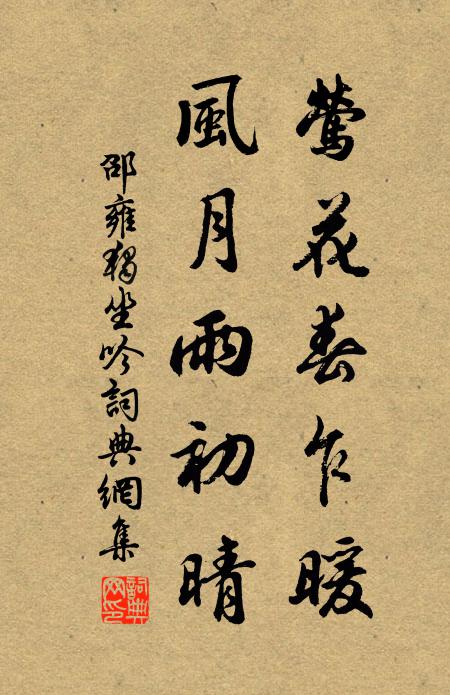 鶯花春乍暖
風月雨初晴
邵雍獨坐吟詞典網集
詞典網印